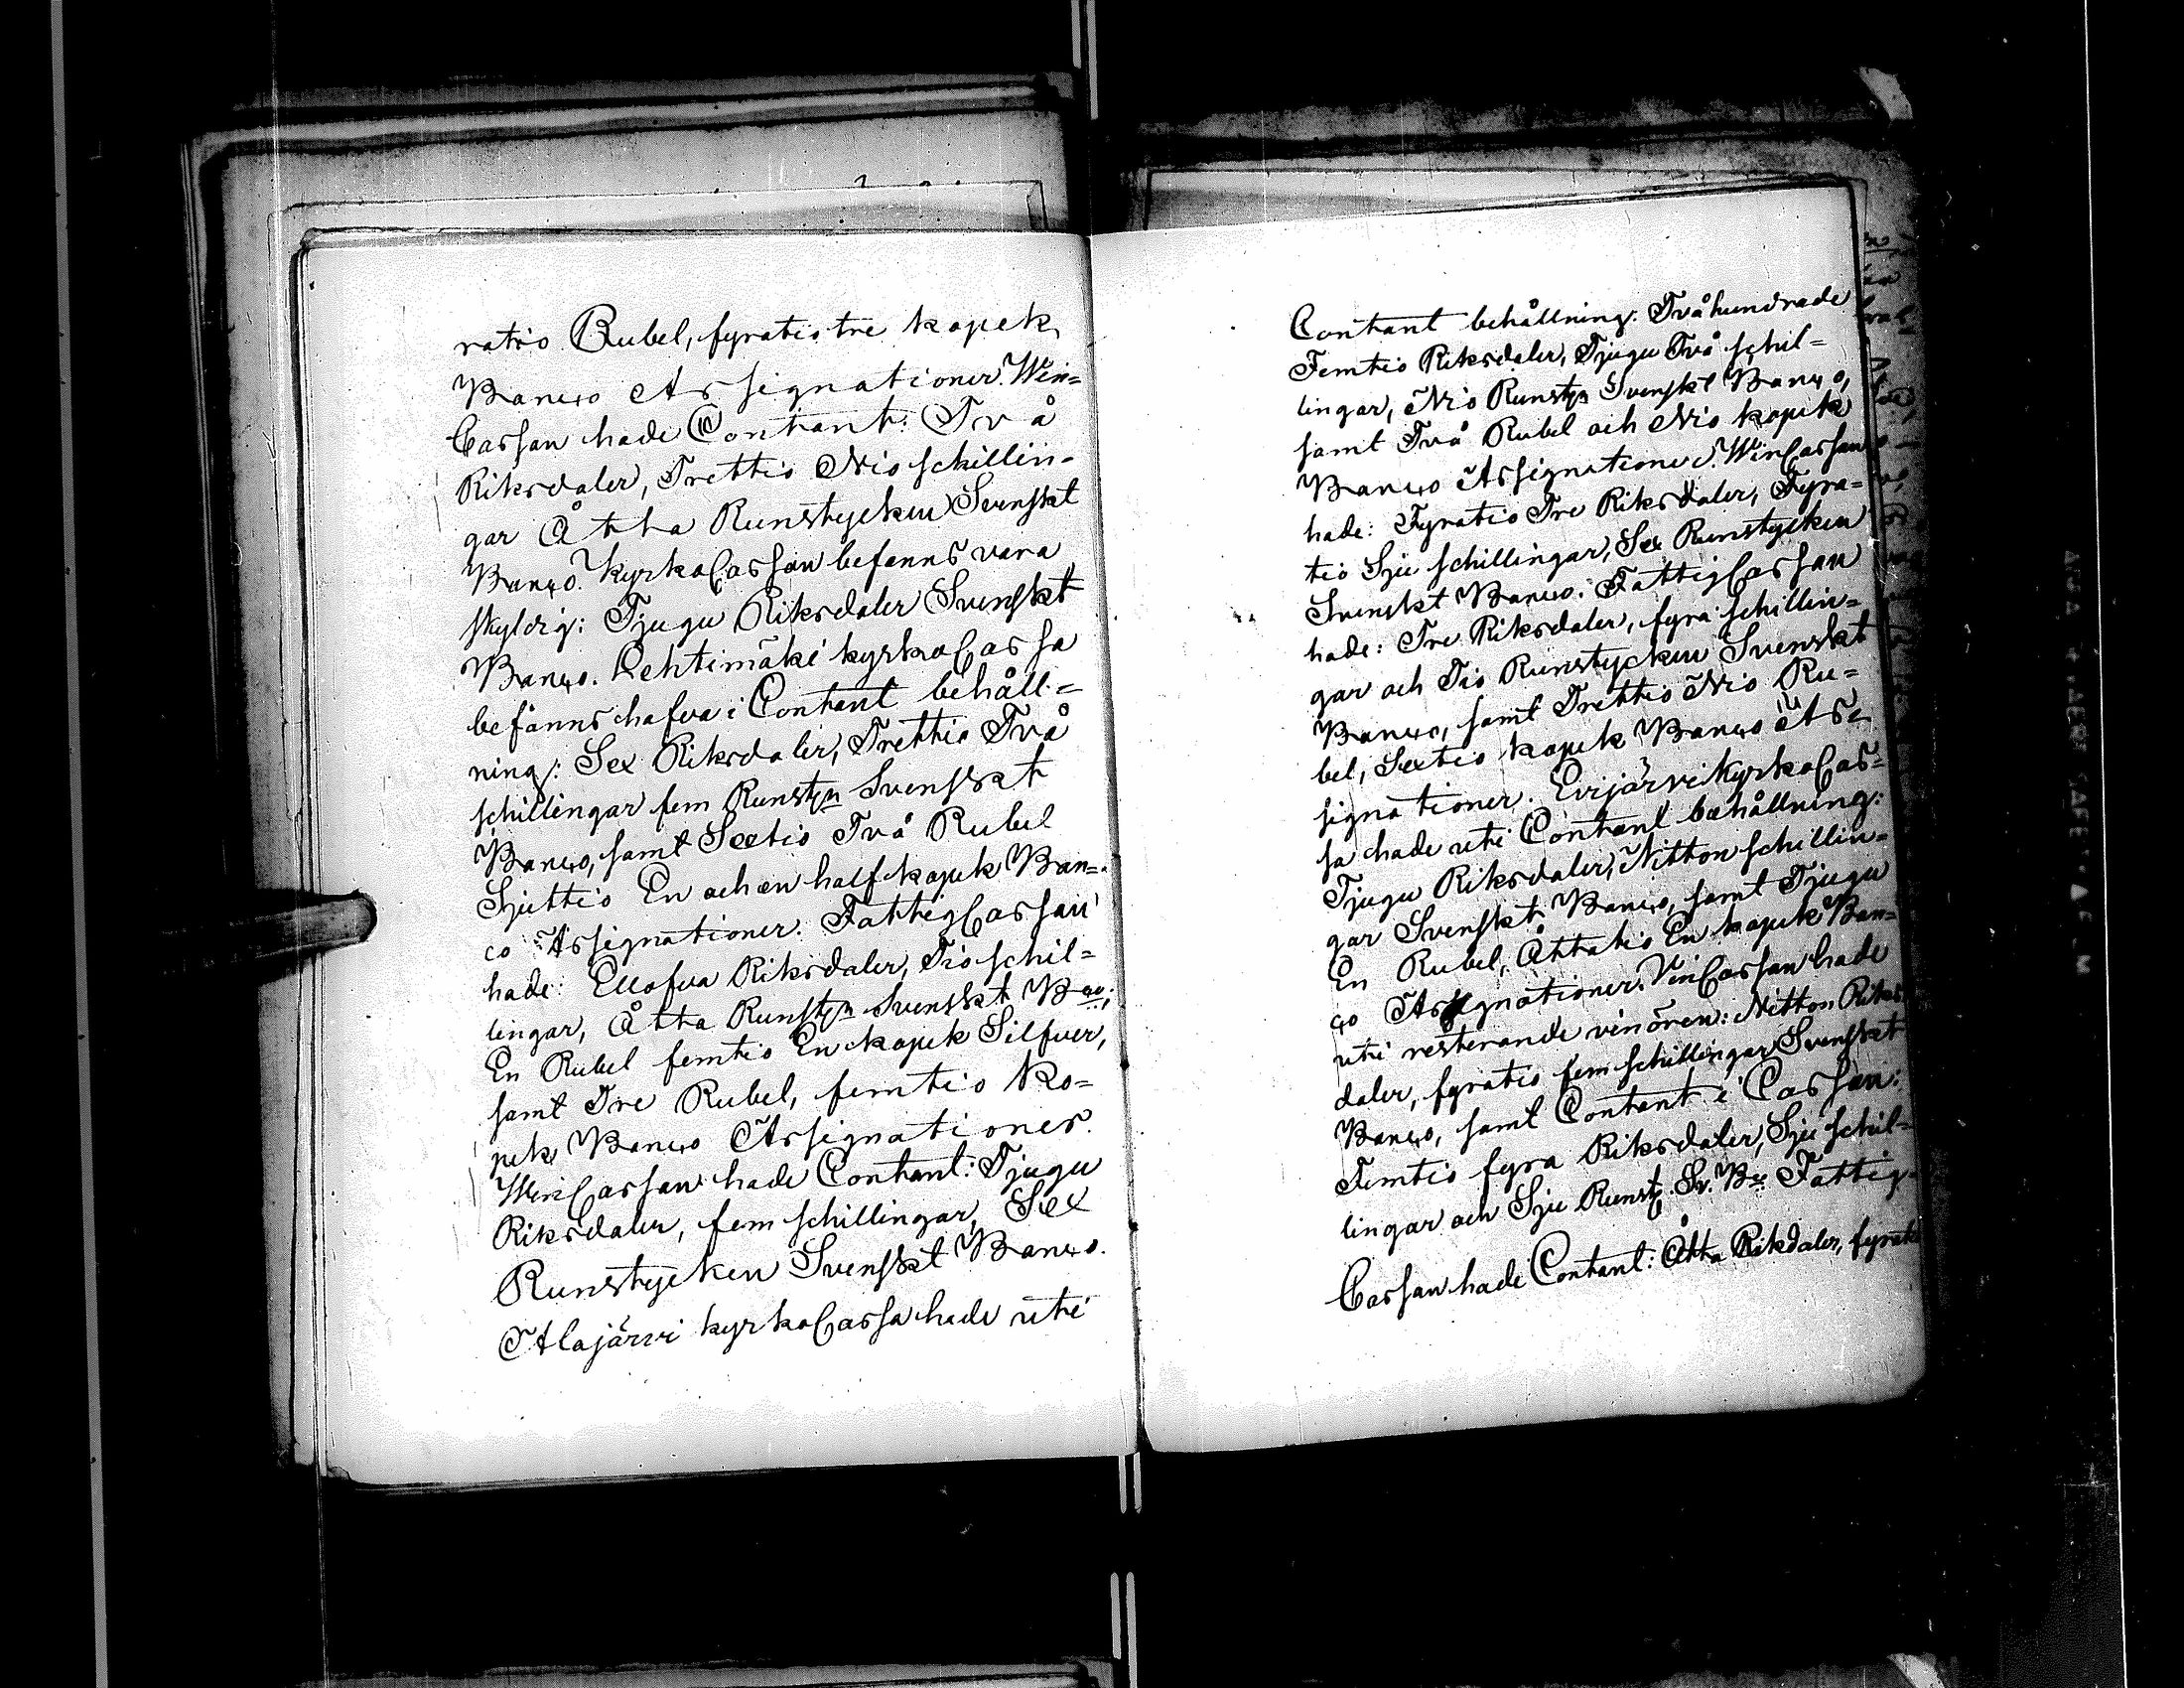 ratio Rubel, fyratio tre kopek
Banco Assignationer. Win=
Cassan hade Contant: Två
Riksdaler, Trettio Nio schillin=
gar Åtta Runstycken Svenskt
Banco. KyrkoCassan befanns vara
skyldig: Tjugu Riksdaler Svenskt
Banco. Lehtimäki kyrkoCassa
befanns hafva i Contant behåll=
ning: Sex Riksdaler, Trettio Två
schillingar fem Runstn Svenskt
Banco, samt Sextio Två Rubel
Sjuttio En och en half kopek Ban=
co Assignationer. FattigCassan
hade: Ellofva Riksdaler, Tio schil=
lingar, Åtta Runstn Svenskt Bco;
En Rubel femtio En kopek Silfver,
samt Tre Rubel, femtio Ko=
pek Banco Assignationer.
WinCassan hade Contant: Tjugu
Riksdaler, fem schillingar, Sex
Runstycken Svenskt Banco.
Alajärvi kyrkoCassa hade uti
Contant behållning: Tvåhundrade
Femtio Riksdaler, Tjugu Två schil=
lingar, Nio Runstn Svenskt Banco,
samt Två Rubel och Nio kopek
Banco Assignationer. WinCassan
hade: Fyratio Tre Riksdaler, Fyra=
tio Sju schillingar, Sex Runstycken
Svenskt Banco. FattigCassan
hade: Tre Riksdaler, fyra schillin=
gar och Tio Runstycken Svenskt
Banco, samt Trettio Nio Ru=
bel, Sextio kopek Banco As=
signationer. Evijärvi KyrkoCas=
sa hade uti Contant behållning:
Tjugu Riksdaler, Nitton schillin=
gar Svenskt Banco, samt Tjugu
En Rubel, Åttatio En kopek Ban=
co Assignationer. VinCassan hade
uti resterande vinören: Nitton Riks
daler, fyratio fem schillingar Svenskt
Banco, samt Contant i Cassan:
Femtio fyra Riksdaler, Sju schil=
lingar och Sju Runst. Sv. Bco Fattig=
Cassan hade Contant: Åtta Rikdaler, fyrati